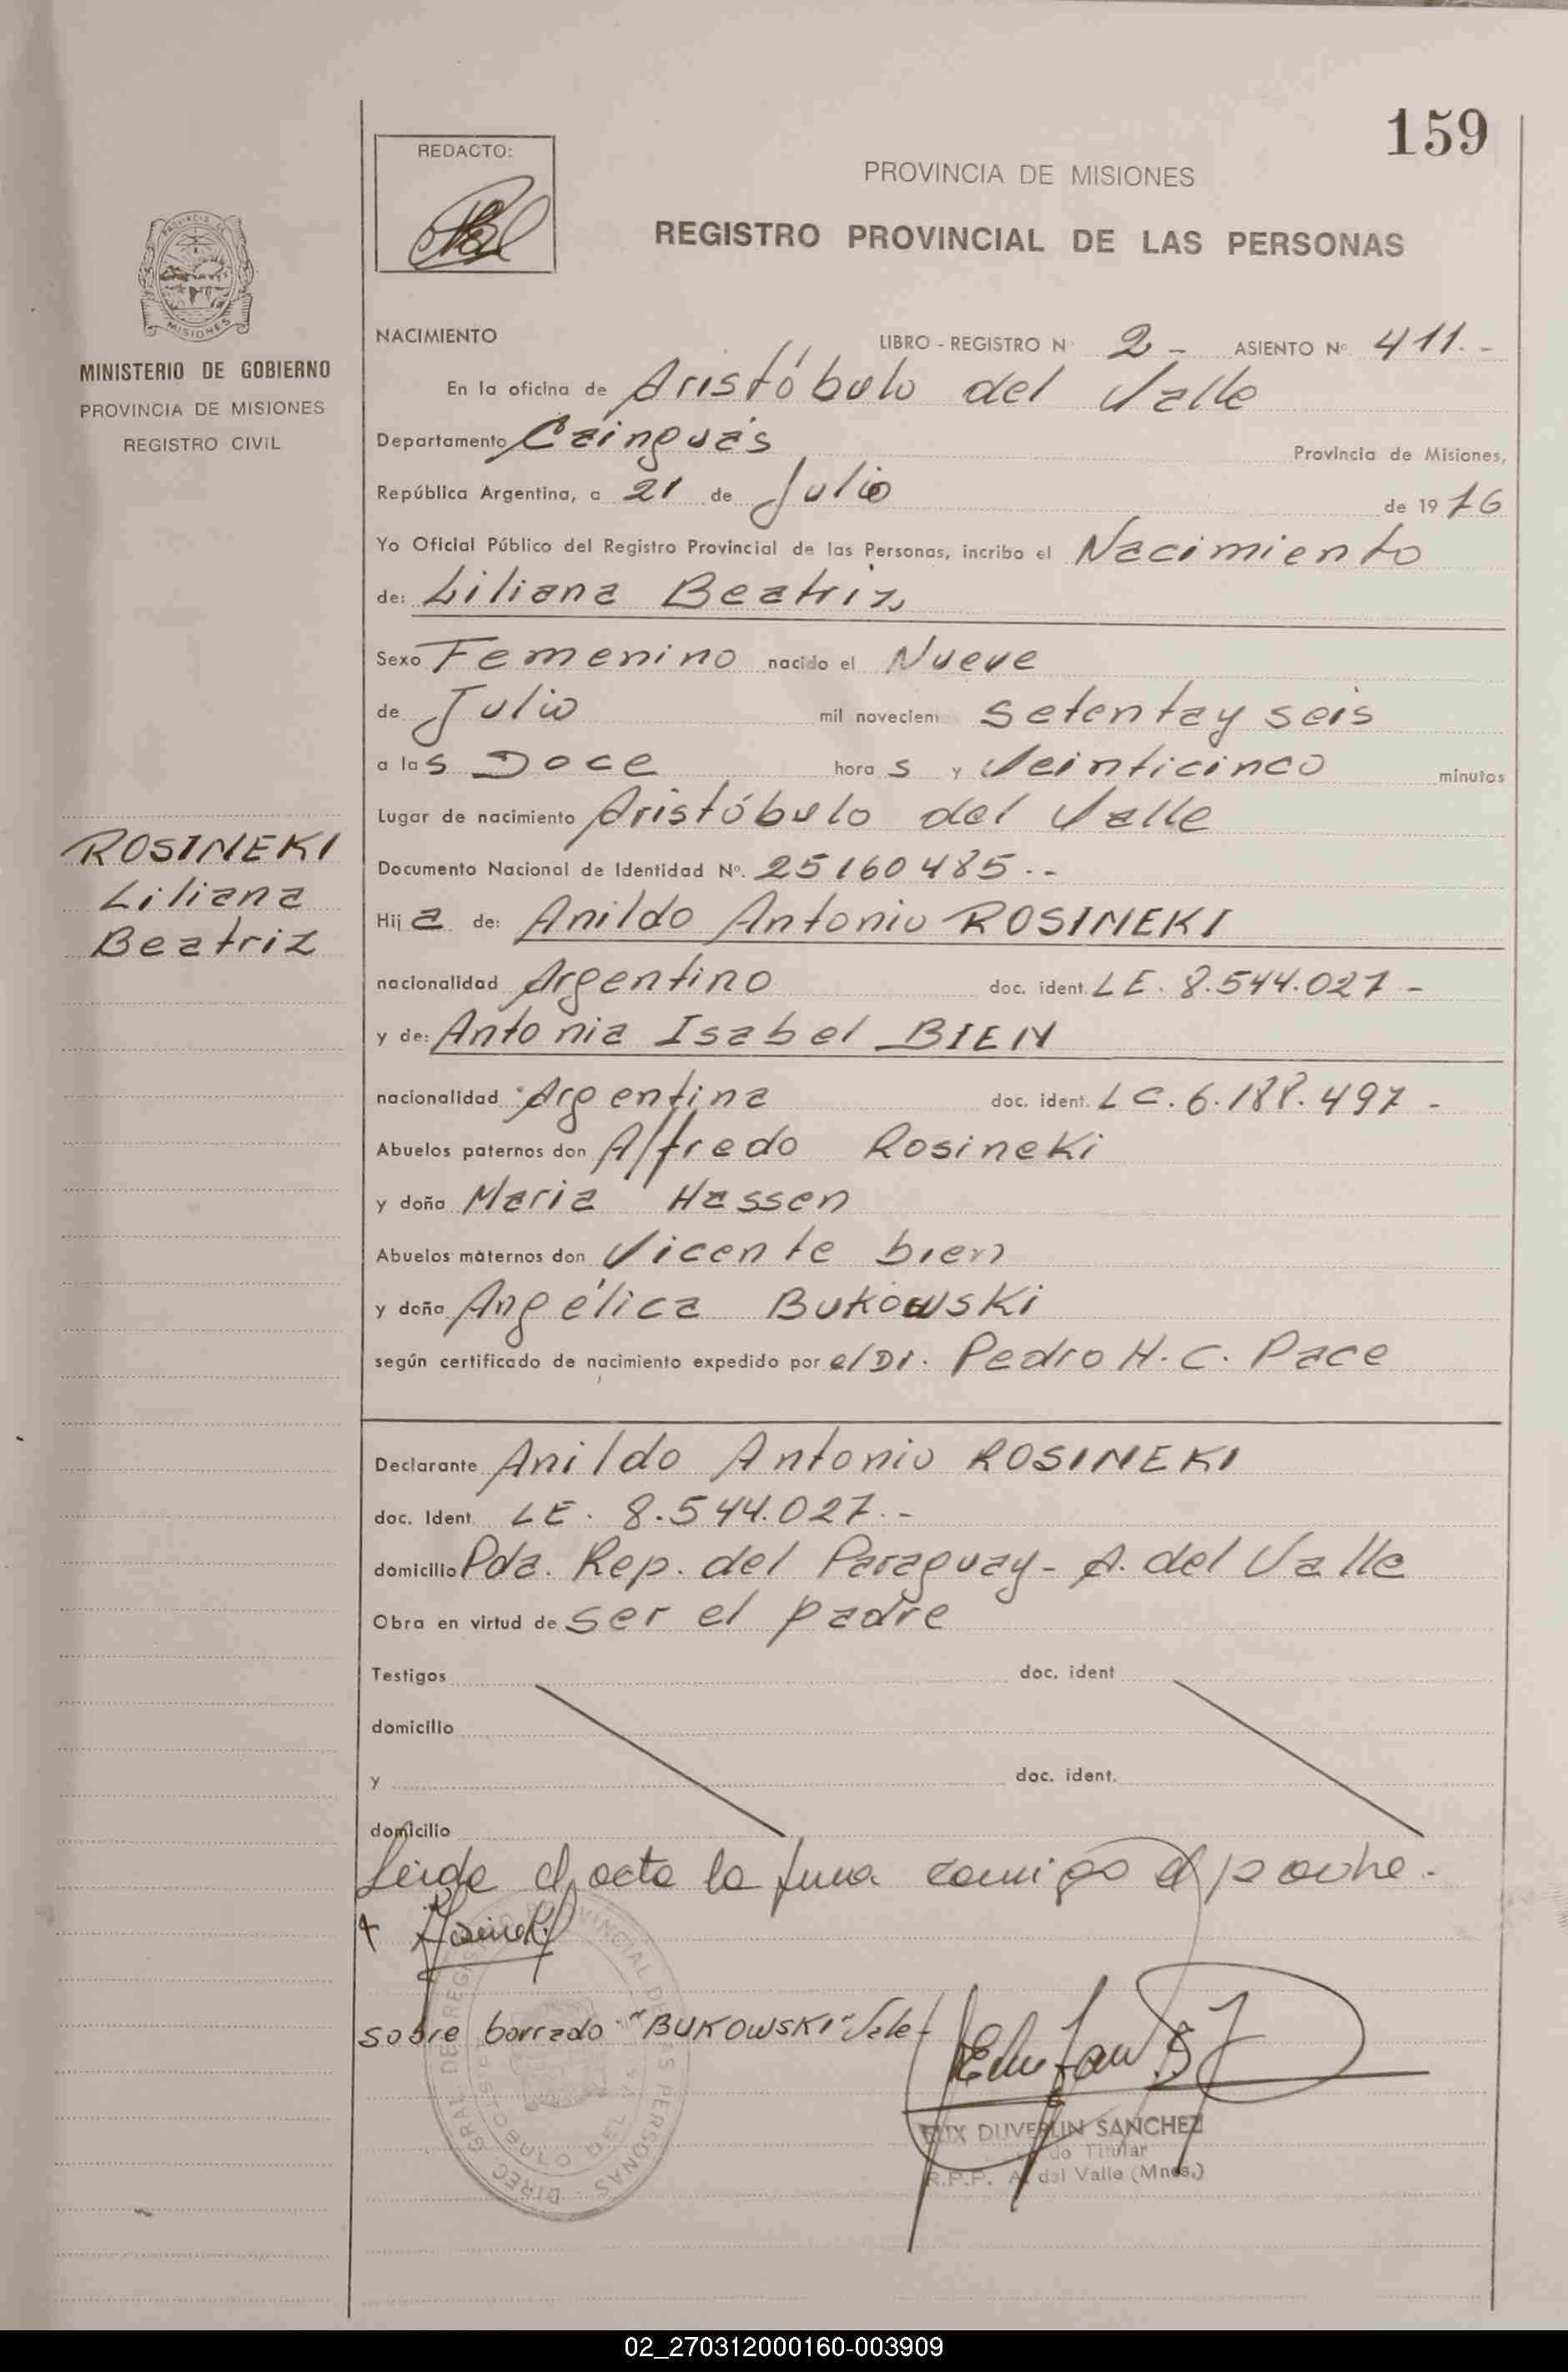 159
REDACTO:
PROVINCIA DE MISIONES
REGISTRO PROVINCIAL DE LAS PERSONAS
MISIONES
MINISTERIO DE GOBIERNO
PROVINCIA DE MISIONES
REGISTRO CIVIL
NACIMIENTO LIBRO - REGISTRO N° 2 - ASIENTO N° 411.-
En la oficina de Aristóbulo del Valle
Departamento Cainguás Provincia de Misiones,
República Argentina, a 21 de Julio de 19 76
Yo Oficial Público del Registro Provincial de las Personas, incribo el Nacimiento
de: Liliana Beatriz
Sexo Femenino nacido el Nueve
de Julio mil novecien setenta y seis
a las Doce horas y Veinticinco minutos
Lugar de nacimiento Aristóbulo del Valle
Documento Nacional de Identidad N°. 25160485.--
Hija de: Anildo Antonio ROSINEKI
nacionalidad Argentino doc. ident. LE. 8.544.027-
y de: Antonia Isabel BIEN
nacionalidad Argentina doc. ident. LC. 6.188.497-
Abuelos paternos don Alfredo Rosineki
y doña Maria Hassen
Abuelos maternos don Vicente bien
y doña Angélica Bukowski
según certificado de nacimiento expedido por el Dr. Pedro H. C. Pace
ROSINEKI
Liliana
Beatriz
Declarante Anildo Antonio ROSINEKI
doc. Ident. LE. 8.544.027.-
domicilio Pda. Rep. del Paraguay - A. del Valle
Obra en virtud de ser el padre
Testigos doc. ident
domicilio
y doc. ident.
domicilio
Leida el acta la firma conmigo el padre.-
sobre borrado "BUKOWSKI" Vale
DIREC. GRAL. DE REGISTRO PROVINCIAL DE LAS PERSONAS
ARISTOBULO DEL VALLE
DUVERLIN SANCHEZ
Titular
R.P.P. A. del Valle (Mnes.)
02_270312000160-003909